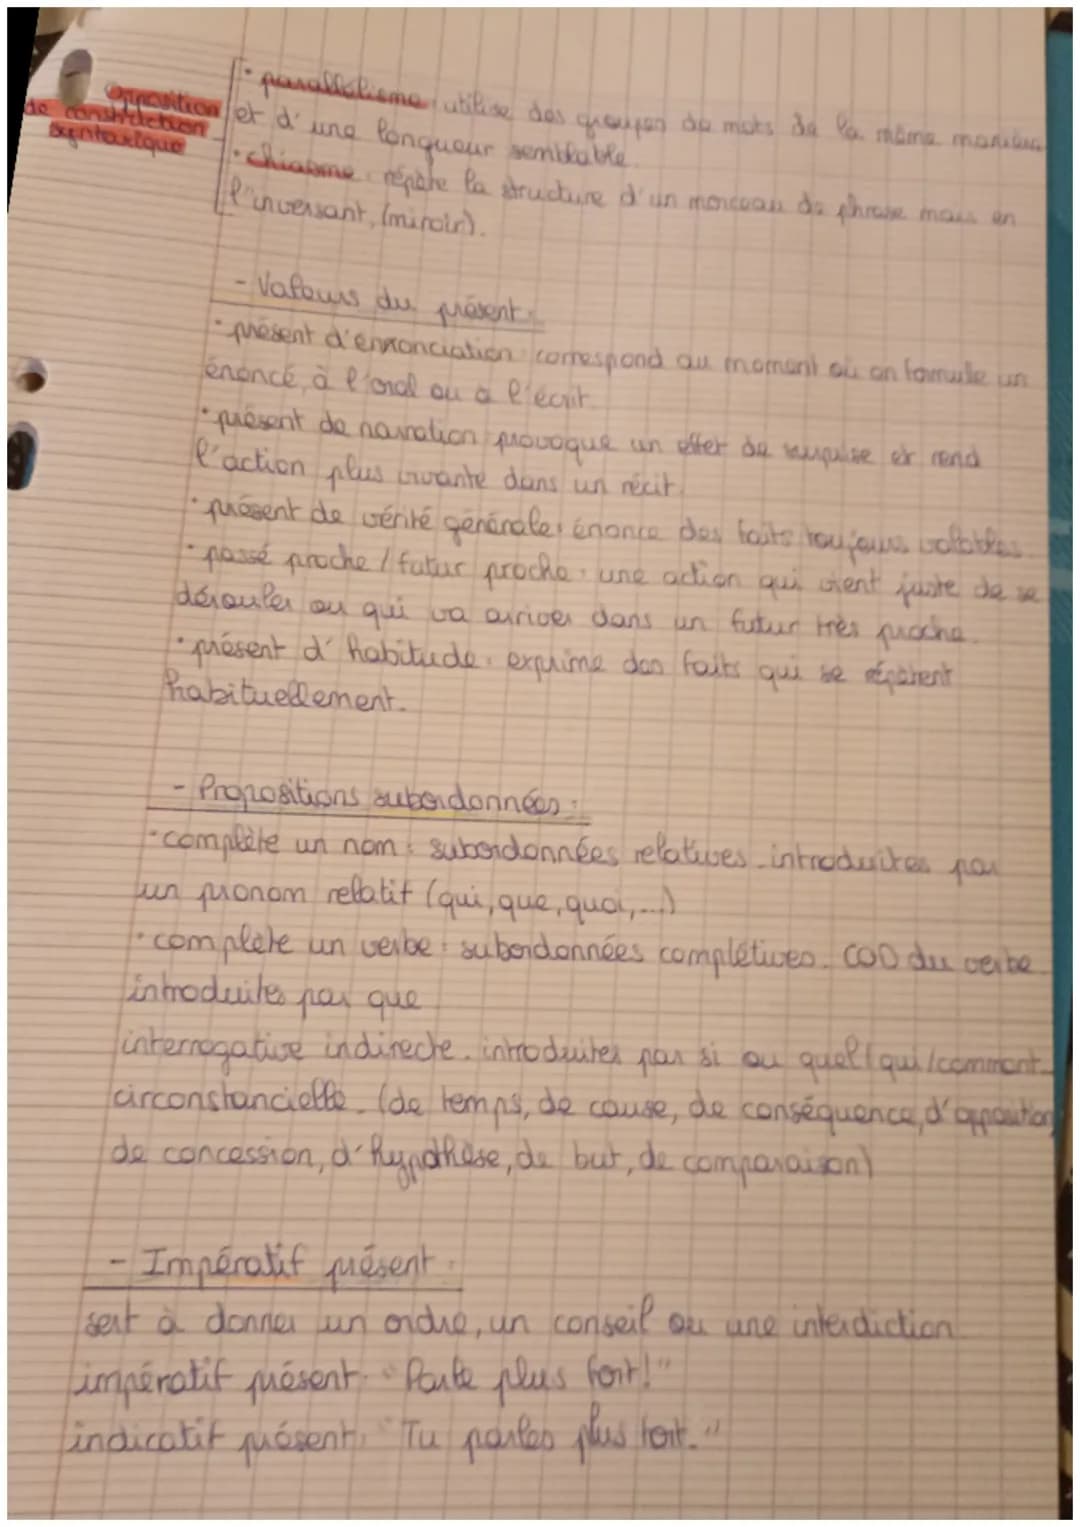 Opposition
de construction
syntaxique
• parallélisme : utilise des groupes de mots de la même manière
et d'une longueur semblable.
• chiasme : répète la structure d'un morceau de phrase mais en
l'inversant, (miroir).
- Valeurs du présent :
• présent d'ennonciation : correspond au moment où on formule un
énoncé, à l'oral ou à l'écrit.
• présent de narration : provoque un effet de surprise et rend
l'action plus vivante dans un récit.
• présent de vérité générale : énonce des faits toujours valables.
• passé proche / futur proche : une action qui vient juste de se
dérouler ou qui va arriver dans un futur très proche.
• présent d'habitude : exprime des faits qui se répètent
habituellement.
- Propositions subordonnées :
• complète un nom : subordonnées relatives - introduites par
un pronom relatif (qui, que, quoi, ...)
• complète un verbe : subordonnées complétives - COD du verbe
introduites par que
interrogative indirecte - introduites par si ou quel/qui/comment
circonstancielle - (de temps, de cause, de conséquence, d'opposition,
de concession, d'hypothèse, de but, de comparaison)
- Impératif présent :
sert à donner un ordre, un conseil ou une interdiction
impératif présent : "Parle plus fort!"
indicatif présent : "Tu parles plus fort."